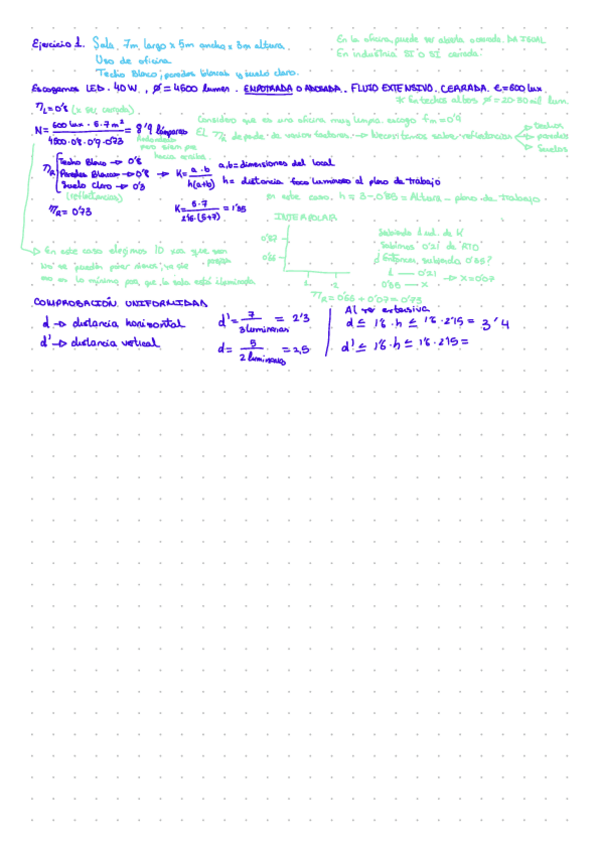 Ejercicio 1. Sala 7m largo x 5m ancho x 3m altura.
Uso de oficina
Techo Blanco, paredes blancas y suelo claro.
En la oficina, puede ser abierta o cerrada. DA IGUAL
En industria SI O SI cerrada.
Escogemos LED. 40W , Ø = 4600 lumen. EMPOTRADA O ADOSADA. FLUJO EXTENSIVO. CERRADA. E=600 lux.
En techos altos Ø = 20-30 mil lum.
η_L = 0'8 (x ser cerrada)
N = 600 lux · 5·7 m² / 4600·0'8·0'9·0'73 = 8'9 lámparas
Considero que es una oficina muy limpia. escojo fm = 0'9
El η_R depende de varios factores → Necesitamos saber reflectancias
→ techos
→ paredes
→ suelos
Redondeo
para siempre
hacia arriba
η_R
Techo Blanco → 0'8
Paredes Blancas → 0'8
Suelo Claro → 0'3
(reflectancias)
→ K = a·b / h(a+b)
a,b = dimensiones del local
h = distancia foco luminoso al plano de trabajo
En este caso. h = 3-0'85 = Altura - plano de trabajo.
η_R = 0'73
K = 5·7 / 2'15·(5+7) = 1'35
INTERPOLAR
0'87
0'66
1
2
Sabiendo 1 ud. de K
Sabemos 0'21 de RTO
¿Entonces, subiendo 0'35?
1 — 0'21
0'35 — x
→ x=0'07
η_R = 0'66 + 0'07 = 0'73
→ En este caso elegimos 10 xq que son
no es lo mismo para que la sala esté iluminada
COMPROBACIÓN UNIFORMIDAD
d → distancia horizontal
d' → distancia vertical
d' = 7 / 3 luminarias = 2'3
d = 5 / 2 luminarias = 2,5
Al ser extensiva
d ≤ 1'6·h ≤ 1'6·2'15 = 3'4
d' ≤ 1'6·h ≤ 1'6·2'15 =